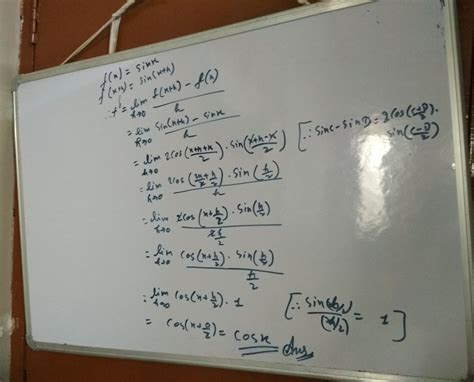 f(x) = sinx
f(x+h) = sin(x+h)
∴ f' = lim h→0 f(x+h) - f(x) / h
= lim h→0 sin(x+h) - sinx / h
= lim h→0 2cos(x+h+x / 2) . sin(x+h-x / 2) [∵ sinc - sinD = 2cos(c+D / 2) . sin(c-D / 2)
= lim h→0 2cos(2x/2 + h/2) . sin(h/2) / h
= lim h→0 2cos(x+h/2) . sin(h/2) / 2h/2
= lim h→0 cos(x+h/2) . sin(h/2) / h/2
= lim h→0 cos(x+h/2) . 1 [∵ = 1 ]
= cos(x+0/2) = cosx Ans